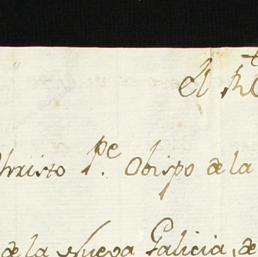 el
Christo Pe. Obispo de la
de la Nueva Galicia, de